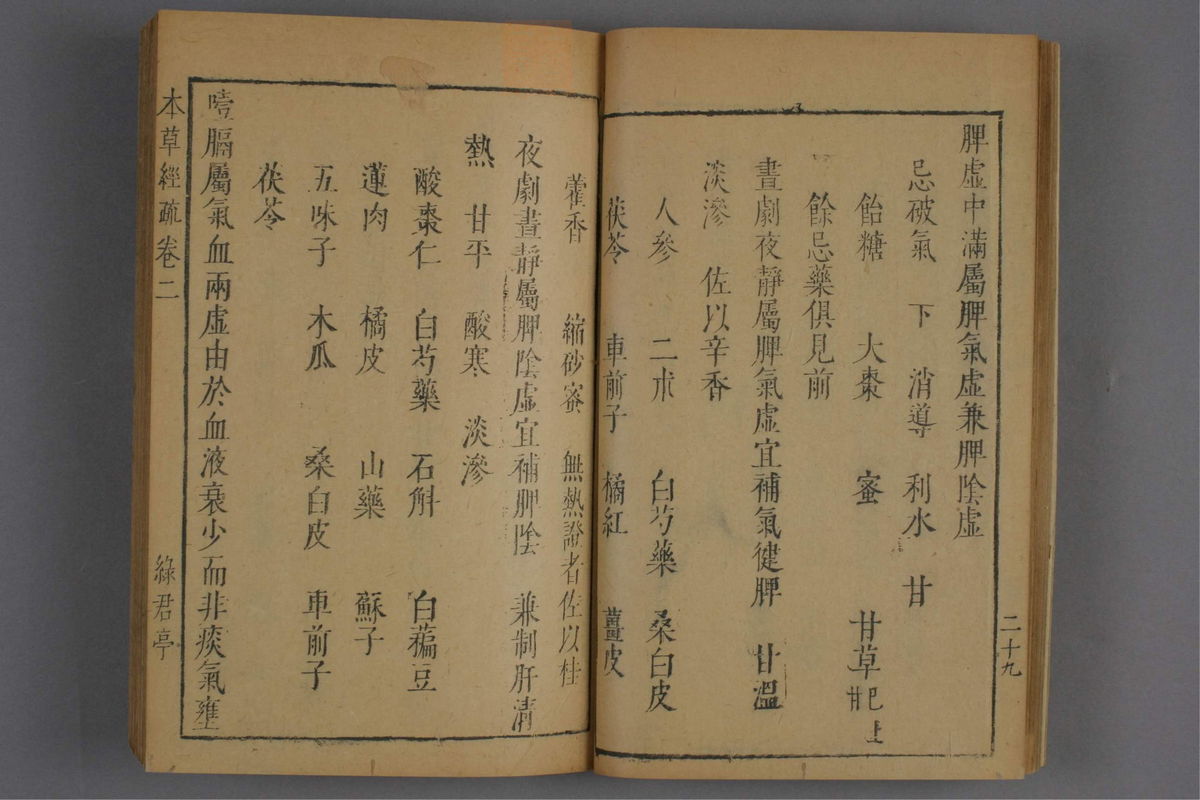 脾虛中滿屬脾氣虛兼脾陰虛
忌破氣 下 消導 利水 甘
飴糖 大棗 蜜 甘草 已上甘
餘忌藥俱見前
晝劇夜靜屬脾氣虛宜補氣健脾 甘溫
淡滲 佐以辛香
人參 二朮 白芍藥 桑白皮
茯苓 車前子 橘紅 薑皮
二十九
藿香 縮砂蜜 無熱證者佐以桂
夜劇晝靜屬脾陰虛宜補脾陰 兼制肝清
熱 甘平 酸寒 淡滲
酸棗仁 白芍藥 石斛 白藊豆
蓮肉 橘皮 山藥 蘇子
五味子 木瓜 桑白皮 車前子
茯苓
噎膈屬氣血兩虛由於血液衰少而非痰氣壅
本草經疏卷二 綠君亭